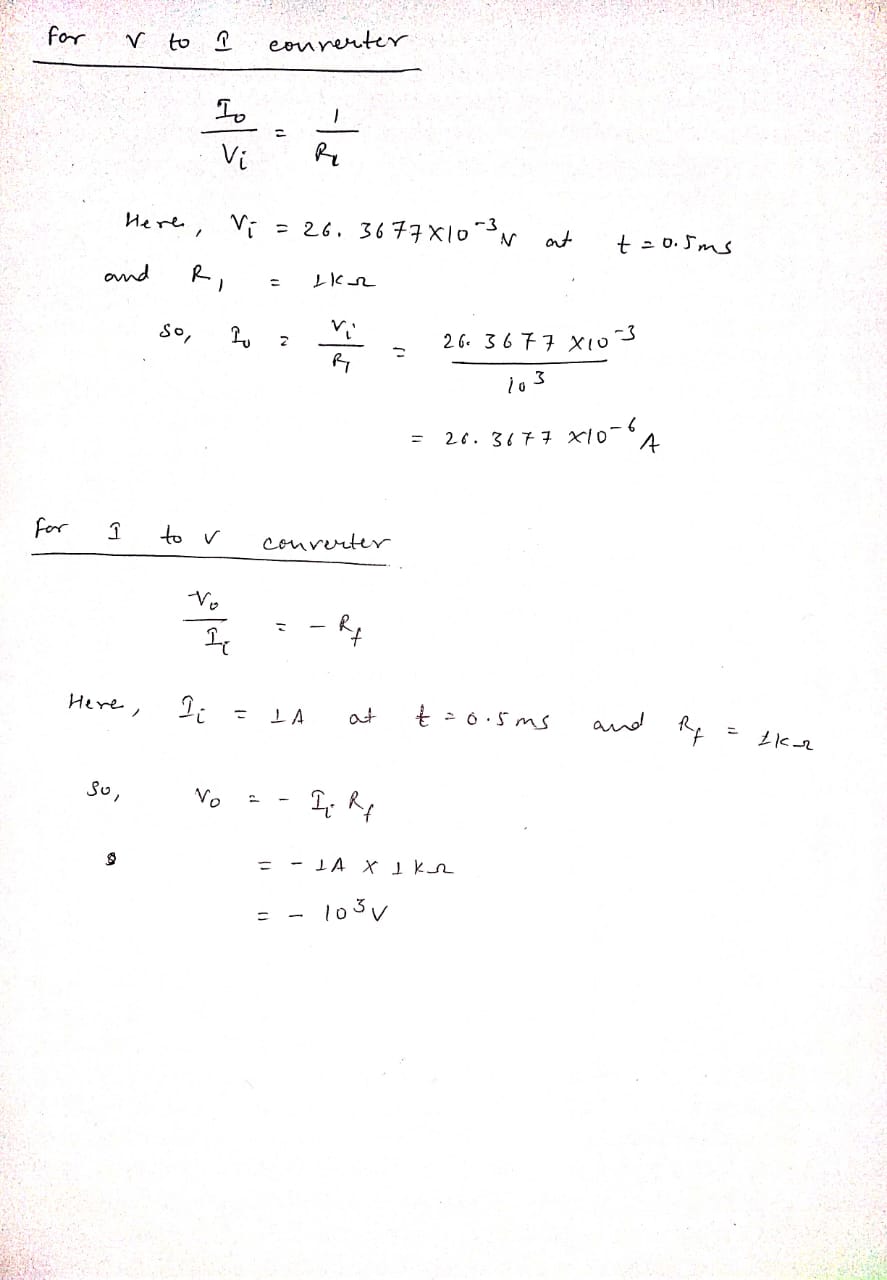 for V to I converter
I₀/Vᵢ = 1/R₁
Here, Vᵢ = 26.3677×10⁻³V at t=0.5ms
and R₁ = 1kΩ
So, I₀ = Vᵢ/R₁ = 26.3677×10⁻³/10³
= 26.3677×10⁻⁶A
for I to V converter
V₀/Iᵢ = - R_f
Here, Iᵢ = 1A at t=0.5ms and R_f = 1kΩ
So, V₀ = - Iᵢ R_f
= - 1A × 1kΩ
= - 10³V